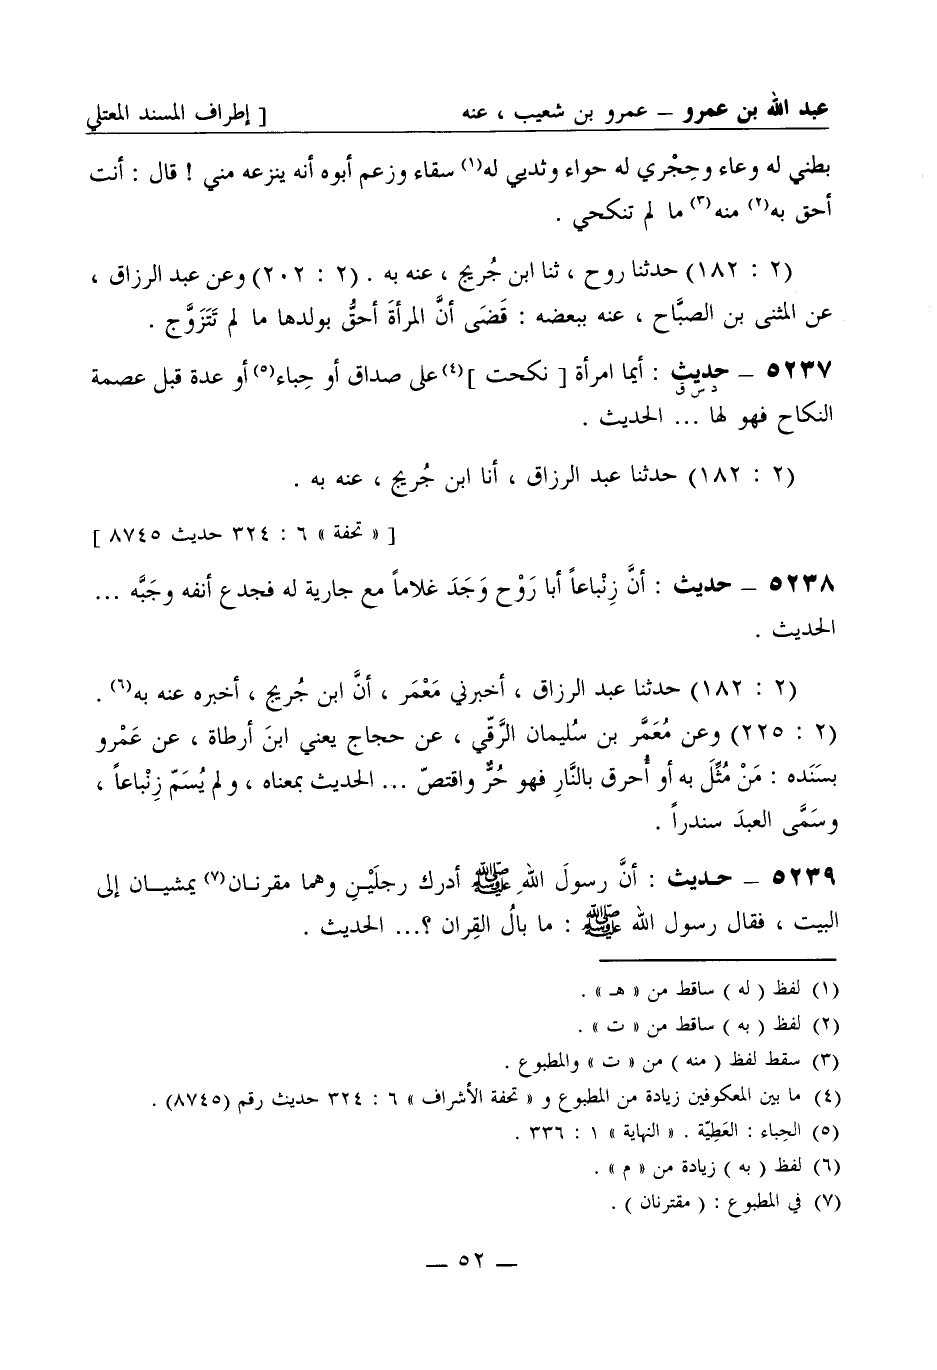 عبد الله بن عمرو – عمرو بن شعيب ، عنه [ إطراف المسند المعتلي
بطني له وعاء وحِجْري له حواء وثديي له(١) سقاء وزعم أبوه أنه ينزعه مني ! قال : أنت
أحق به(٢) منه(٣) ما لم تنكحي .
(٢ : ١٨٢) حدثنا روح ، ثنا ابن جُريج ، عنه به . (٢ : ٢٠٢) وعن عبد الرزاق ،
عن المثنى بن الصبَّاح ، عنه ببعضه : قَضَى أنَّ المرأةَ أحقُّ بولدها ما لم تَتَزوَّج .
٥٢٣٧ – حديث : أيما امرأة [ نكحت ](٤) على صداق أو حِباء(٥) أو عدة قبل عصمة
د س ق
النكاح فهو لها ... الحديث .
(٢ : ١٨٢) حدثنا عبد الرزاق ، أنا ابن جُريج ، عنه به .
[ « تحفة » ٦ : ٣٢٤ حديث ٨٧٤٥ ]
٥٢٣٨ – حديث : أنَّ زِنْباعاً أبا رَوْح وَجَدَ غلاماً مع جارية له فجدع أنفه وجَبَّه ...
الحديث .
(٢ : ١٨٢) حدثنا عبد الرزاق ، أخبرني مَعْمَر ، أنَّ ابن جُريج ، أخبره عنه به(٦) .
(٢ : ٢٢٥) وعن مُعَمَّر بن سُليمان الرَّقّي ، عن حجاج يعني ابنَ أرطاة ، عن عَمْرو
بسَنَده : مَنْ مُثِّلَ به أو أُحرق بالنَّارِ فهو حُرٌّ واقتصّ ... الحديث بمعناه ، ولم يُسَمّ زِنْباعاً ،
وسَمَّى العبدَ سندراً .
٥٢٣٩ – حديث : أنَّ رسولَ اللهِ ﷺ أدرك رجلَيْنِ وهما مقرنان(٧) يمشيان إلى
البيت ، فقال رسول الله ﷺ : ما بالُ القِران ؟... الحديث .
(١) لفظ ( له ) ساقط من « هـ » .
(٢) لفظ ( به ) ساقط من « ت » .
(٣) سقط لفظ ( منه ) من « ت » والمطبوع .
(٤) ما بين المعكوفين زيادة من المطبوع و « تحفة الأشراف » ٦ : ٣٢٤ حديث رقم (٨٧٤٥) .
(٥) الحِباء : العَطِيّة . « النهاية » ١ : ٣٣٦ .
(٦) لفظ ( به ) زيادة من « م » .
(٧) في المطبوع : ( مقترنان ) .
– ٥٢ –